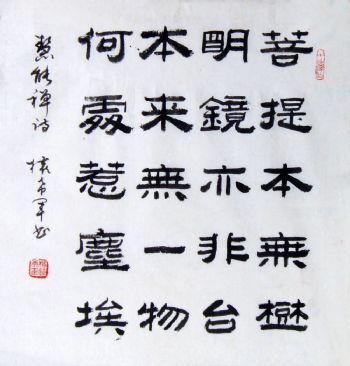 菩提本無樹
明鏡亦非台
本来無一物
何處惹塵埃
慧能禅诗